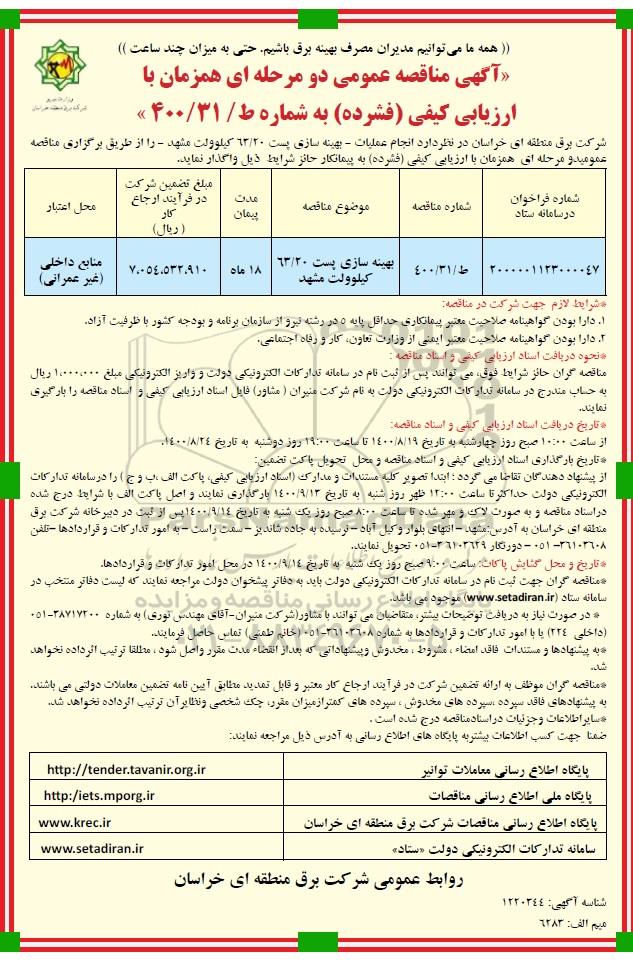 (( همه ما می‌توانیم مدیران مصرف بهینه برق باشیم. حتی به میزان چند ساعت ))
وزارت نیرو
شرکت برق منطقه ای خراسان
«آگهی مناقصه عمومی دو مرحله ای همزمان با
ارزیابی کیفی (فشرده) به شماره ط/ ۴۰۰/۳۱ »
شرکت برق منطقه ای خراسان در نظردارد انجام عملیات – بهینه سازی پست ۶۳/۲۰ کیلوولت مشهد – را از طریق برگزاری مناقصه
عمومیدو مرحله ای همزمان با ارزیابی کیفی (فشرده) به پیمانکار حائز شرایط ذیل واگذار نماید.
شماره فراخوان درسامانه ستاد | شماره مناقصه | موضوع مناقصه | مدت پیمان | مبلغ تضمین شرکت در فرآیند ارجاع کار ( ریال) | محل اعتبار
۲۰۰۰۰۰۱۱۲۳۰۰۰۰۴۷ | ط/۴۰۰/۳۱ | بهینه سازی پست ۶۳/۲۰ کیلوولت مشهد | ۱۸ ماه | ۷،۰۵۴،۵۳۲،۹۱۰ | منابع داخلی (غیر عمرانی)
*شرایط لازم جهت شرکت در مناقصه:
۱. دارا بودن گواهینامه صلاحیت معتبر پیمانکاری حداقل پایه ۵ در رشته نیرو از سازمان برنامه و بودجه کشور با ظرفیت آزاد.
۲. دارا بودن گواهینامه صلاحیت معتبر ایمنی از وزارت تعاون، کار و رفاه اجتماعی.
*نحوه دریافت اسناد ارزیابی کیفی و اسناد مناقصه :
مناقصه گران حائز شرایط فوق، می توانند پس از ثبت نام در سامانه تدارکات الکترونیکی دولت و واریز الکترونیکی مبلغ ۱،۰۰۰،۰۰۰ ریال
به حساب مندرج در سامانه تدارکات الکترونیکی دولت به نام شرکت منیران ( مشاور) فایل اسناد ارزیابی کیفی و اسناد مناقصه را بارگیری
نمایند.
*تاریخ دریافت اسناد ارزیابی کیفی و اسناد مناقصه:
از ساعت ۱۰:۰۰ صبح روز چهارشنبه به تاریخ ۱۴۰۰/۸/۱۹ تا ساعت ۱۹:۰۰ روز دوشنبه به تاریخ ۱۴۰۰/۸/۲۴.
*تاریخ بارگذاری اسناد ارزیابی کیفی و اسناد مناقصه و محل تحویل پاکت تضمین:
از پیشنهاد دهندگان تقاضا می گردد : ابتدا تصویر کلیه مستندات و مدارک (اسناد ارزیابی کیفی، پاکت الف ،ب و ج ) را درسامانه تدارکات
الکترونیکی دولت حداکثر تا ساعت ۱۲:۰۰ ظهر روز شنبه به تاریخ ۱۴۰۰/۹/۱۳ بارگذاری نمایند و اصل پاکت الف با شرایط درج شده
دراسناد مناقصه و به صورت لاک و مهر شده تا ساعت ۸:۰۰ صبح روز یک شنبه به تاریخ ۱۴۰۰/۹/۱۴پس از ثبت در دبیرخانه شرکت برق
منطقه ای خراسان به آدرس:مشهد – انتهای بلوار وکیل آباد – نرسیده به جاده شاندیز – سمت راست – به امور تدارکات و قراردادها –تلفن
۳۶۱۰۳۶۰۸-۰۵۱ – دورنگار ۳۶۱۰۳۶۲۹-۰۵۱ تحویل نمایند.
*تاریخ و محل گشایش پاکات: ساعت ۹:۰۰ صبح روز یک شنبه به تاریخ ۱۴۰۰/۹/۱۴ در محل امور تدارکات و قراردادها.
*مناقصه گران جهت ثبت نام در سامانه تدارکات الکترونیکی دولت باید به دفاتر پیشخوان دولت مراجعه نمایند که لیست دفاتر منتخب در
سامانه ستاد (www.setadiran.ir) موجود می باشد.
* در صورت نیاز به دریافت توضیحات بیشتر، متقاضیان می توانند با مشاور(شرکت منیران-آقای مهندس نوری) به شماره ۳۸۷۱۷۲۰۰-۰۵۱
(داخلی ۲۲۴) یا با امور تدارکات و قراردادها به شماره ۳۶۱۰۳۶۰۸-۰۵۱ (خانم طمنی) تماس حاصل فرمایند.
*به پیشنهادها و مستندات فاقد امضاء ، مشروط ، مخدوش وپیشنهاداتی که بعداز انقضاء مدت مقرر واصل شود ، مطلقا ترتیب اثرداده نخواهد
شد.
*مناقصه گران موظف به ارائه تضمین شرکت در فرآیند ارجاع کار معتبر و قابل تمدید مطابق آیین نامه تضمین معاملات دولتی می باشند.
به پیشنهادهای فاقد سپرده ،سپرده های مخدوش ، سپرده های کمترازمیزان مقرر، چک شخصی ونظایرآن ترتیب اثرداده نخواهد شد.
*سایراطلاعات وجزئیات دراسنادمناقصه درج شده است .
ضمنا جهت کسب اطلاعات بیشتربه پایگاه های اطلاع رسانی به آدرس ذیل مراجعه نمایند:
پایگاه اطلاع رسانی معاملات توانیر | http://tender.tavanir.org.ir
پایگاه ملی اطلاع رسانی مناقصات | http:/iets.mporg.ir
پایگاه اطلاع رسانی مناقصات شرکت برق منطقه ای خراسان | www.krec.ir
سامانه تدارکات الکترونیکی دولت «ستاد» | www.setadiran.ir
روابط عمومی شرکت برق منطقه ای خراسان
شناسه آگهی: ۱۲۲۰۳۴۴
میم الف: ۶۲۸۳